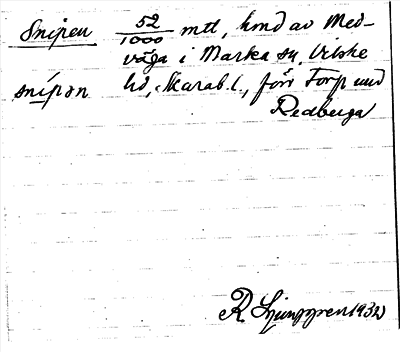 Snipen 52/1000 mtl, hmd av Med-
våga i Marka sn, Vilske
snípən hd, Skarab. l., förr Torp und
Redberga
R Ljunggren 1932